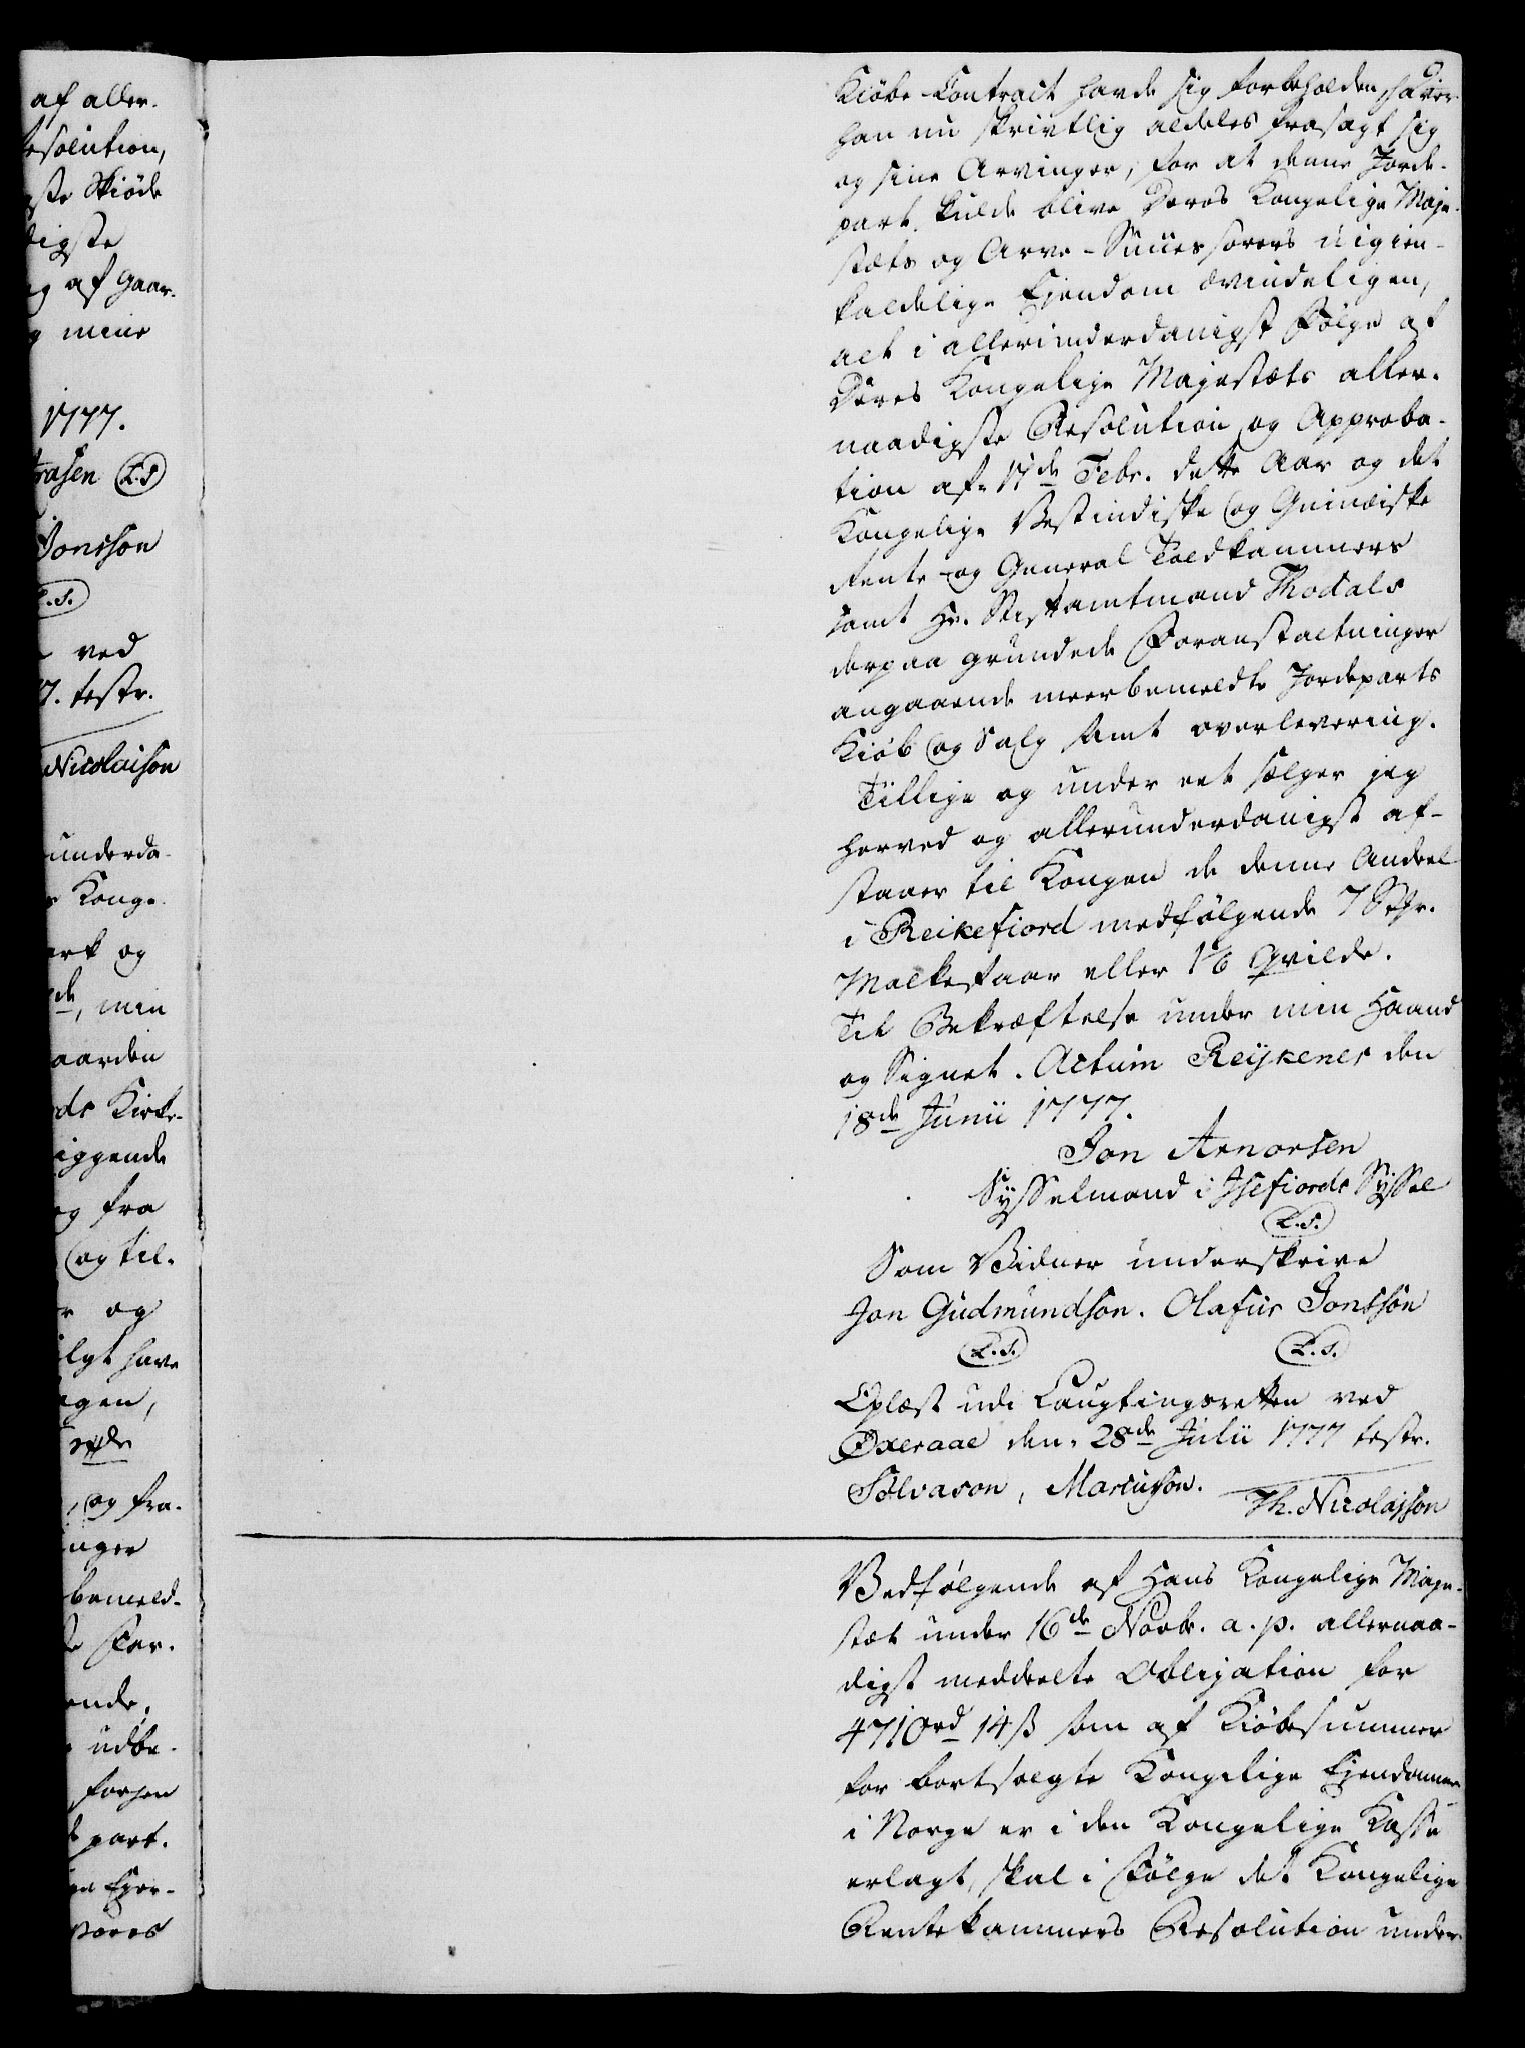 af aller-
esolution,
ste Skiöde
digste
og af Gaar-
g mine
1777.
rasen L.S
Jonsson
L.S.
ved
7. testr.
Nicolaison
underda-
Konge
ark og
de, min
aarden
ds Kirke-
liggende
og fra
og til-
r og
lgt have
agen,
og fra-
inger
bemeld-
For-
ende,
udbe-
forhen
part.
Ejer-
Deres
Kiöbe-Contract havde sig forbeholden, haver
han nu skrivtlig aldeles frasagt sig
og sine Arvinger, for at denne Jorde-
part kulde blive Deres Kongelige Maje-
stæts og Arve-Successorers uigien-
kaldelige Ejendom ævindeligen,
alt i allerunderdanigst Fölge af
Deres Kongelige Majestæts aller-
naadigste Resolution og Approba-
tion af 17de Febr. dette Aar og det
Kongelige Vestindiske og Guinæiske
Rente- og General Toldkammers
samt Hr. Stiftamtmand Thodals
derpaa grundede Foranstaltninger
angaaende meerbemeldte Jordeparts
Kiöb og Salg samt overlevering.
Tillige og under eet sælger jeg
herved og allerunderdanigst af-
staaer til Kongen de denne Andeel
i Reikefiord medfölgende 7 Stkr.
Malkefaar eller 1 1/6 Qvilde.
Til Bekræftelse under min Haand
og Signet. Actum Reykenes den
18de Junii 1777.
Jon Arnorsen
Sysselmand i Isefiords Syssel
L.S.
Som Vidner underskrive
Jon Gudmundson. Olafur Jonsson
L.S. L.S.
Oplæst udi Laugtingsretten ved
Öxeraae den 28de Julii 1777 testr.
Sölvason, Marcuson. Th. Nicolajson
Vedfölgende af Hans Kongelige Maje-
stæt under 16de Novbr. a. p. allernaa-
digst meddeelte Obligation for
4710rd 14ß som af Kiöbesummer
for bortsolgte Kongelige Ejendomme
i Norge er i den Kongelige Kasse
erlagt, skal i Fölge det Kongelige
Rentekammers Resolution under